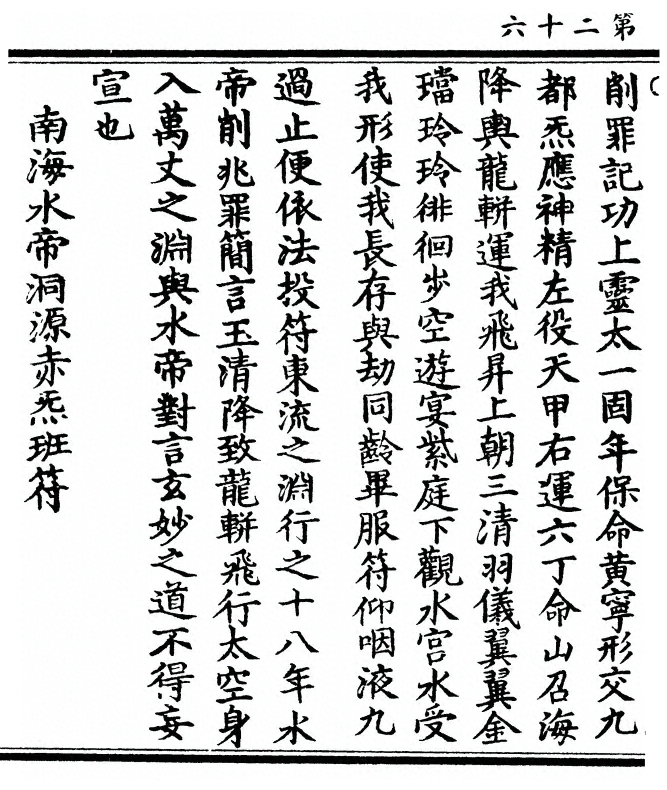 第二十六
削罪記功上靈太一固年保命黄寧形交九
都炁應神精左役天甲右運六丁命山召海
降輿龍軿運我飛昇上朝三清羽儀翼翼金
璫玲玲徘徊步空遊宴紫庭下觀水宫水受
我形使我長存與劫同齡畢服符仰咽液九
過止便依法投符東流之淵行之十八年水
帝削兆罪簡言玉清降致龍軿飛行太空身
入萬丈之淵與水帝對言玄妙之道不得妄
宣也
南海水帝洞源赤炁班符